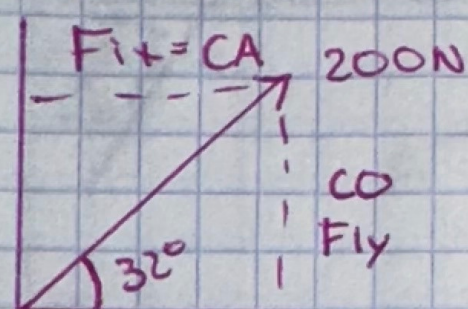 F1x = CA 200N
CO
F1y
32°